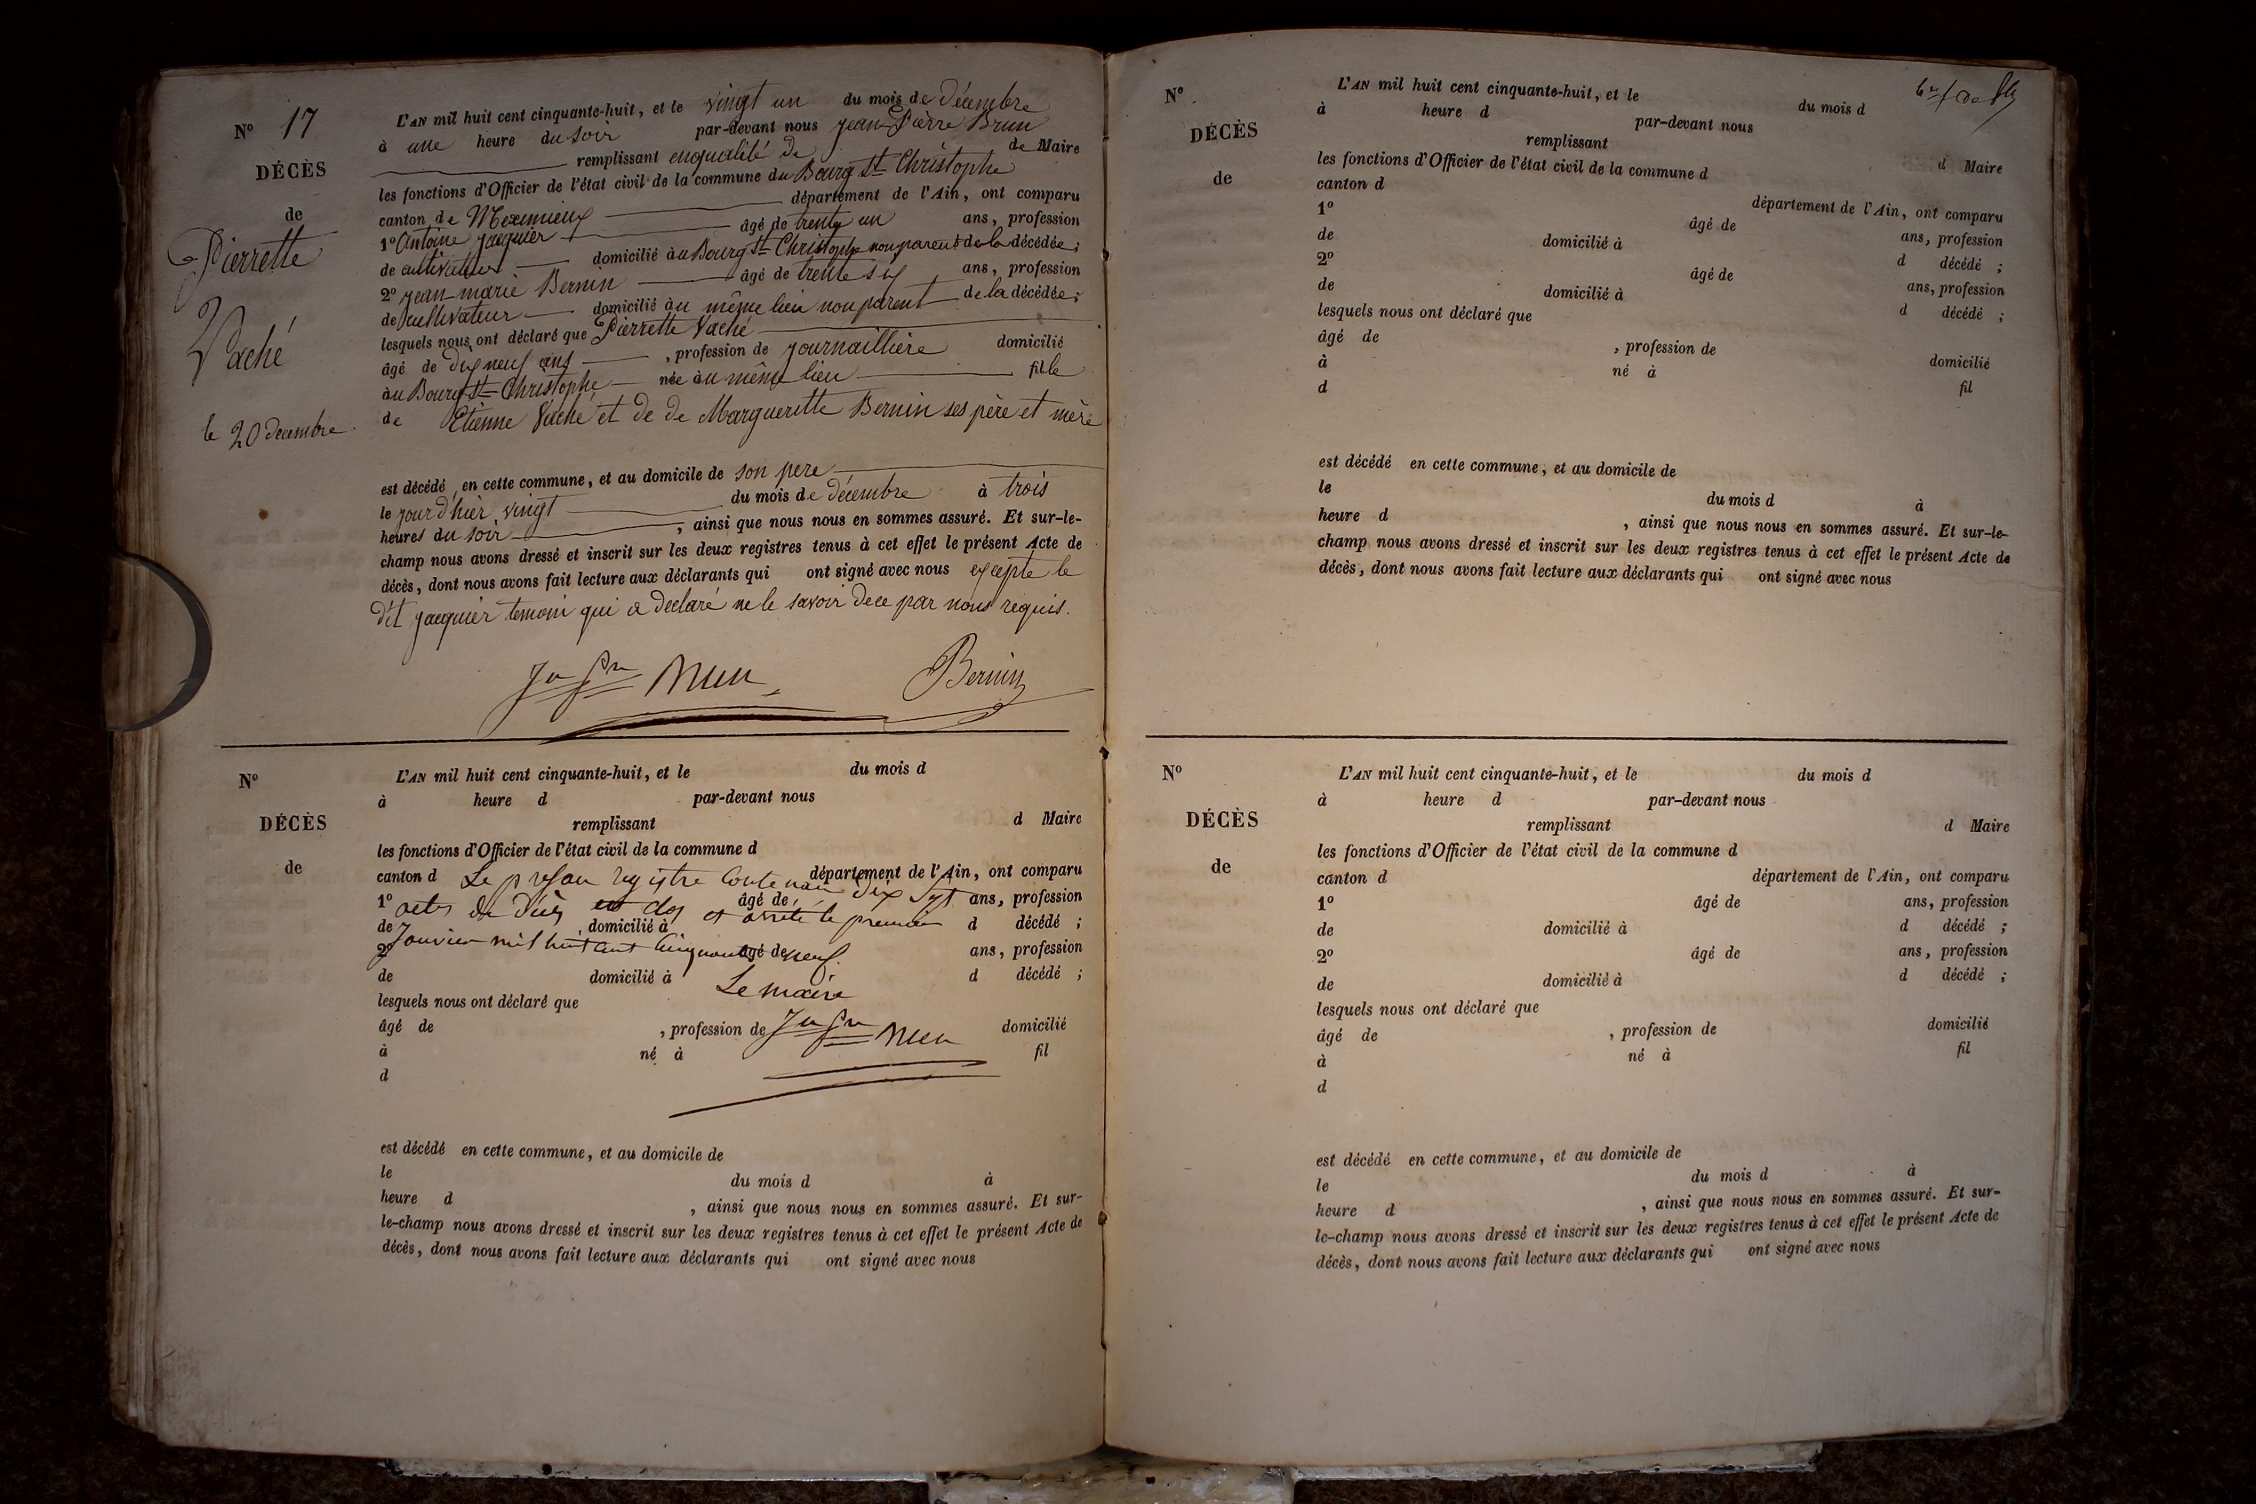 N° 17
DÉCÈS
de
Pierrette
Vaché
le 20 decembre
L'AN mil huit cent cinquante-huit, et le vingt un du mois de décembre
à une heure du soir par-devant nous jean Pierre Brun
remplissant enqualité de de Maire
les fonctions d'Officier de l'état civil de la commune du Bourg St Christophe
canton de Meximieux département de l'Ain, ont comparu
1° Antoine jacquier âgé de trente un ans, profession
de cultivateur domicilié au Bourg St Christophe non parent de la décédée;
2° jean marie Bernin âgé de trente six ans, profession
de cultivateur domicilié au même lieu non parent de la décédée;
lesquels nous ont déclaré que Pierrette Vaché
âgé de dix neuf ans, profession de journaillière domicilié
au Bourg St Christophe née au même lieu fille
de Etienne Vaché et de de Margueritte Bernin ses père et mère
est décédé en cette commune, et au domicile de son pere
le jour d'hier vingt du mois de décembre à trois
heures du soir, ainsi que nous nous en sommes assuré. Et sur-le-
champ nous avons dressé et inscrit sur les deux registres tenus à cet effet le présent Acte de
décès, dont nous avons fait lecture aux déclarants qui ont signé avec nous excepte le
dit jacquier temoin qui a declaré ne le savoir de ce par nous requis.
Jn Pre Brun Bernin
N°
DÉCÈS
de
L'AN mil huit cent cinquante-huit, et le du mois d
à heure d par-devant nous
remplissant d Maire
les fonctions d'Officier de l'état civil de la commune d
canton d département de l'Ain, ont comparu
Le presan registre contenan dix sept
1° âgé de ans, profession
actes de décès clos et arrêté le premier
de domicilié à d décédé ;
Janvier mil huit cent cinquante neuf.
2° âgé de ans, profession
de domicilié à d décédé ;
Le maire
lesquels nous ont déclaré que
âgé de , profession de domicilié
Jn Pre Brun
à né à fil
d
est décédé en cette commune, et au domicile de
le du mois d à
heure d , ainsi que nous nous en sommes assuré. Et sur-
le-champ nous avons dressé et inscrit sur les deux registres tenus à cet effet le présent Acte de
décès, dont nous avons fait lecture aux déclarants qui ont signé avec nous
N°
DÉCÈS
de
L'AN mil huit cent cinquante-huit, et le du mois d
à heure d par-devant nous
remplissant d Maire
les fonctions d'Officier de l'état civil de la commune d
canton d département de l'Ain, ont comparu
1° âgé de ans, profession
de domicilié à d décédé ;
2° âgé de ans, profession
de domicilié à d décédé ;
lesquels nous ont déclaré que
âgé de , profession de domicilié
à né à fil
d
est décédé en cette commune, et au domicile de
le du mois d à
heure d , ainsi que nous nous en sommes assuré. Et sur-le-
champ nous avons dressé et inscrit sur les deux registres tenus à cet effet le présent Acte de
décès, dont nous avons fait lecture aux déclarants qui ont signé avec nous
N°
DÉCÈS
de
L'AN mil huit cent cinquante-huit, et le du mois d
à heure d par-devant nous
remplissant d Maire
les fonctions d'Officier de l'état civil de la commune d
canton d département de l'Ain, ont comparu
1° âgé de ans, profession
de domicilié à d décédé ;
2° âgé de ans, profession
de domicilié à d décédé ;
lesquels nous ont déclaré que
âgé de , profession de domicilié
à né à fil
d
est décédé en cette commune, et au domicile de
le du mois d à
heure d , ainsi que nous nous en sommes assuré. Et sur-
le-champ nous avons dressé et inscrit sur les deux registres tenus à cet effet le présent Acte de
décès, dont nous avons fait lecture aux déclarants qui ont signé avec nous